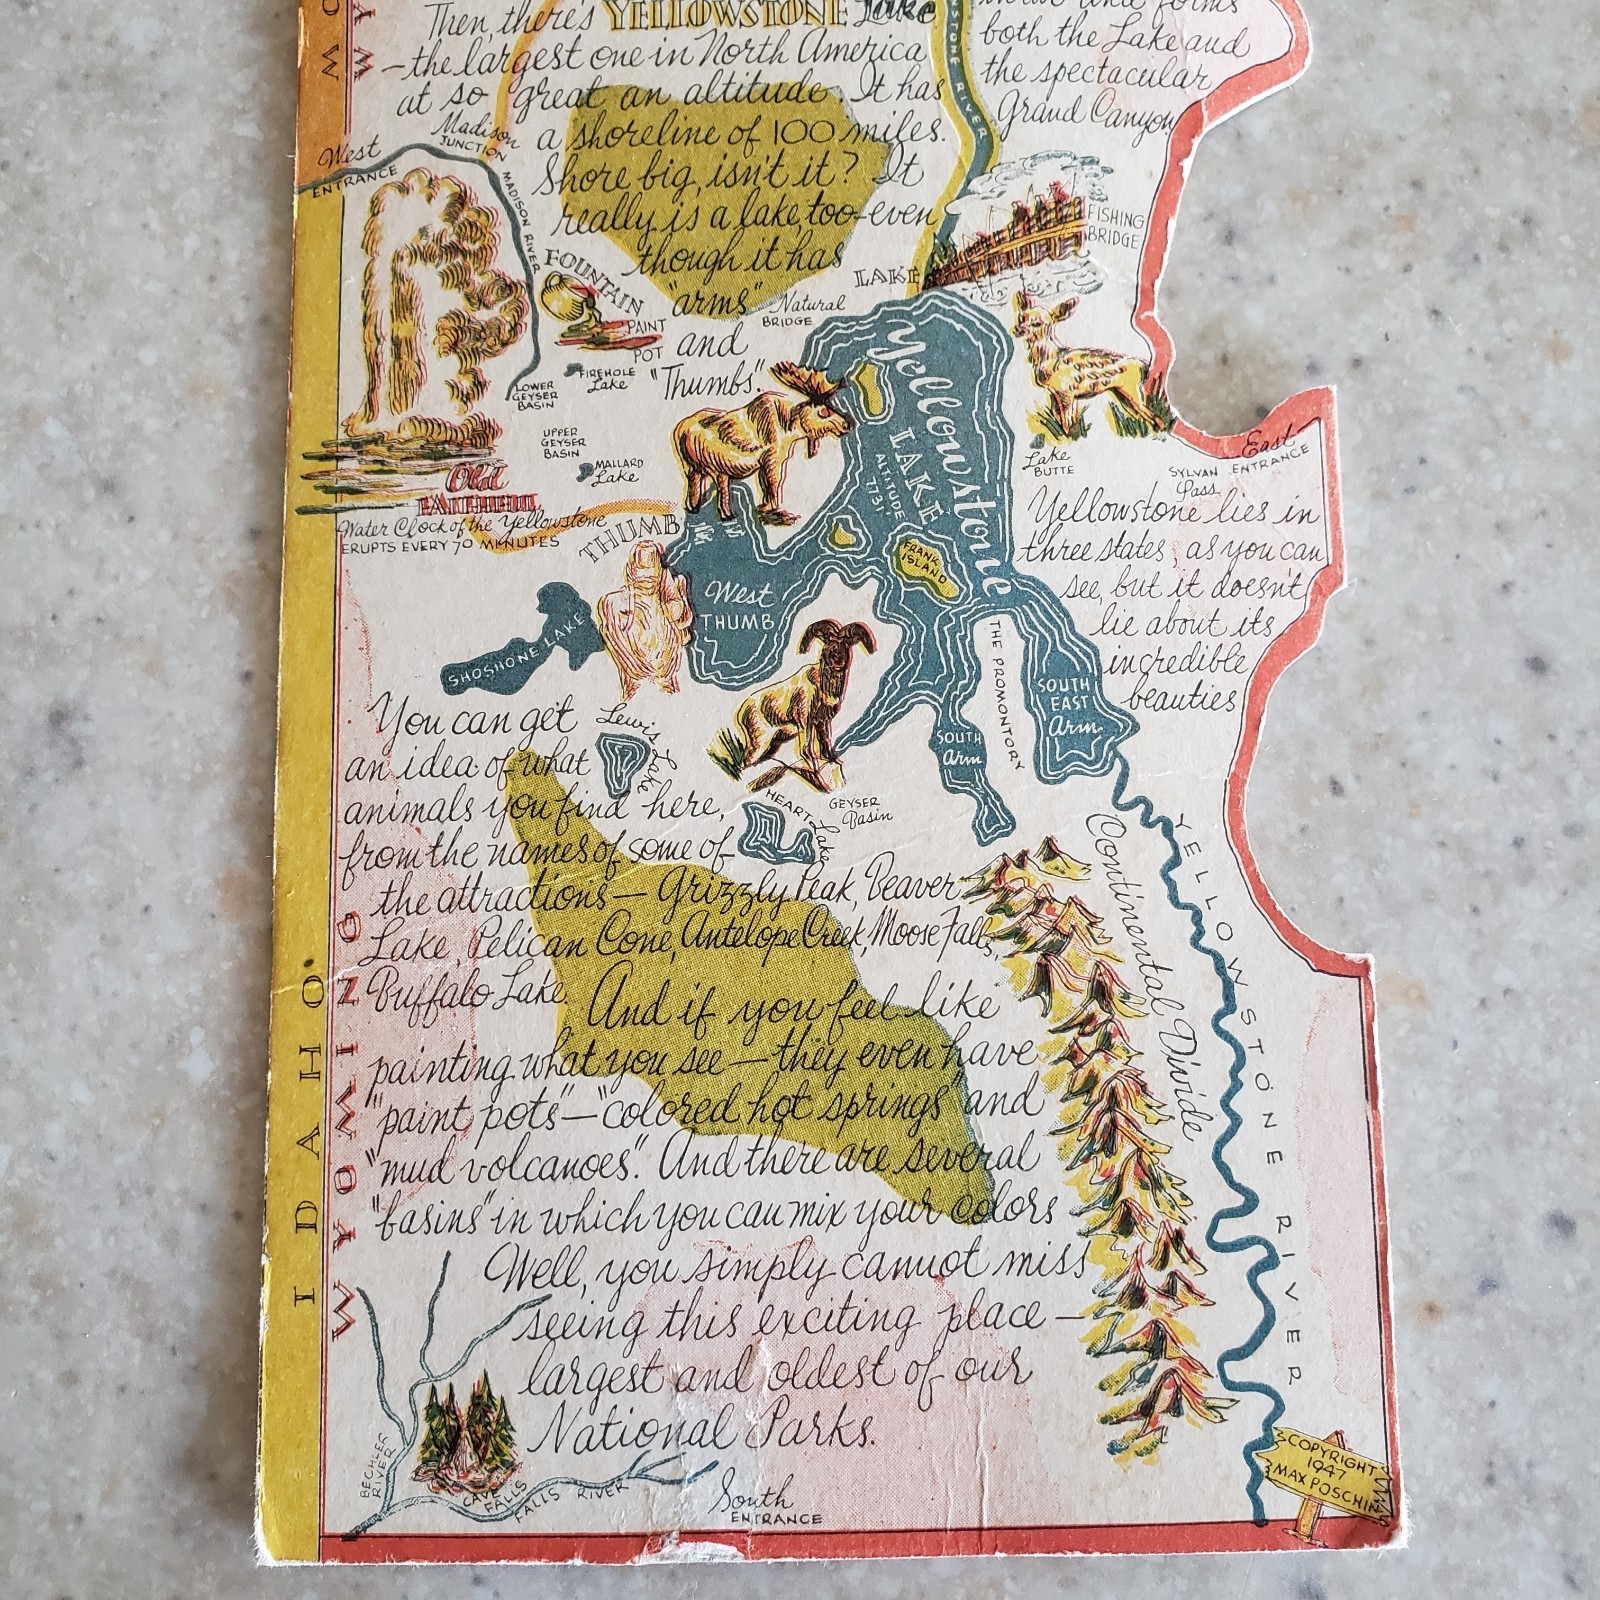 Then, there's YELLOWSTONE Lake
—the largest one in North America
at so great an altitude. It has
a shoreline of 100 miles.
Shore big, isn't it? It
really is a lake, too-even
though it has
"arms"
and
"Thumbs".
both the Lake and
the spectacular
Grand Canyon
STONE RIVER
MO
WY
West
ENTRANCE
Madison
JUNCTION
MADISON RIVER
FISHING
BRIDGE
LAKE
FOUNTAIN
PAINT
POT
Natural
BRIDGE
FIREHOLE
Lake
LOWER
GEYSER
BASIN
UPPER
GEYSER
BASIN
MALLARD
Lake
Old
FAITHFUL
Water Clock of the Yellowstone
ERUPTS EVERY 70 MINUTES
THUMB
West
THUMB
Yellowstone
LAKE
ALTITUDE
7731
FRANK
ISLAND
Lake
BUTTE
SYLVAN
Pass
East
ENTRANCE
Yellowstone lies in
three states, as you can
see, but it doesn't
lie about its
incredible
beauties
SHOSHONE LAKE
THE PROMONTORY
SOUTH
EAST
Arm
SOUTH
Arm
Lewis Lake
HEART Lake
GEYSER
Basin
You can get
an idea of what
animals you find here,
from the names of some of
the attractions — Grizzly Peak, Beaver
Lake, Pelican Cone, Antelope Creek, Moose Falls,
Buffalo Lake.
And if you feel like
painting what you see — they even have
"paint pots" — "colored hot springs" and
"mud volcanoes". And there are several
"basins" in which you can mix your colors
Well, you simply cannot miss
seeing this exciting place —
largest and oldest of our
National Parks.
Continental Divide
YELLOWSTONE RIVER
IDAHO
WYOMING
BECHLER
RIVER
CAVE
FALLS
FALLS RIVER
South
ENTRANCE
COPYRIGHT
1947
MAX POSCHIN